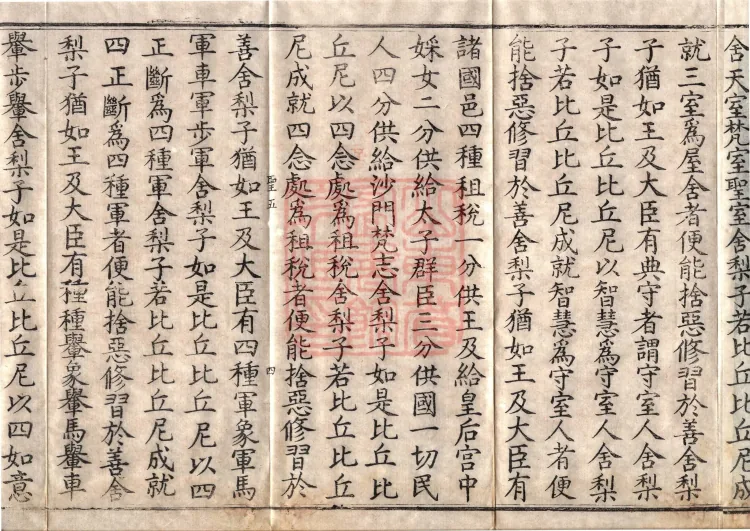 舍天室梵室聖室舍梨子若比丘比丘尼成
就三室爲屋舍者便能捨惡修習於善舍梨
子猶如王及大臣有典守者謂守室人舍梨
子如是比丘比丘尼以智慧爲守室人舍梨
子若比丘比丘尼成就智慧爲守室人者便
能捨惡修習於善舍梨子猶如王及大臣有
諸國邑四種租稅一分供王及給皇后宮中
婇女二分供給太子群臣三分供國一切民
人四分供給沙門梵志舍梨子如是比丘比
丘尼以四念處爲租稅舍梨子若比丘比丘
尼成就四念處爲租稅者便能捨惡修習於
聖五 四
善舍梨子猶如王及大臣有四種軍象軍馬
軍車軍步軍舍梨子如是比丘比丘尼以四
正斷爲四種軍舍梨子若比丘比丘尼成就
四正斷爲四種軍者便能捨惡修習於善舍
梨子猶如王及大臣有種種轝象轝馬轝車
轝步轝舍梨子如是比丘比丘尼以四如意